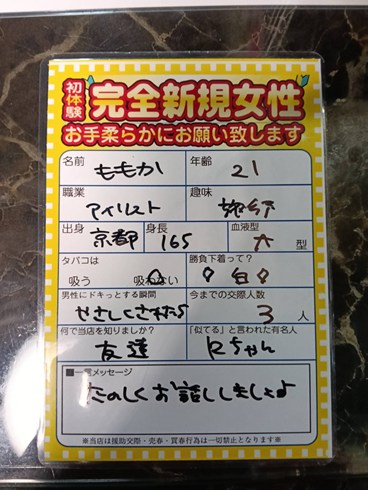 初体験
完全新規女性
お手柔らかにお願い致します
名前 ももか 年齢 21
職業 アイリスト 趣味
出身 京都 身長 165 血液型 型
タバコは 吸う 吸わない 勝負下着って? 白
男性にドキっとする瞬間 やさしくされたら 今までの交際人数 3 人
何で当店を知りましたか? 友達 「似てる」と言われた有名人 Rちゃん
■一言メッセージ
たのしくお話ししましょ
※当店は援助交際・売春・買春行為は一切禁止となります※